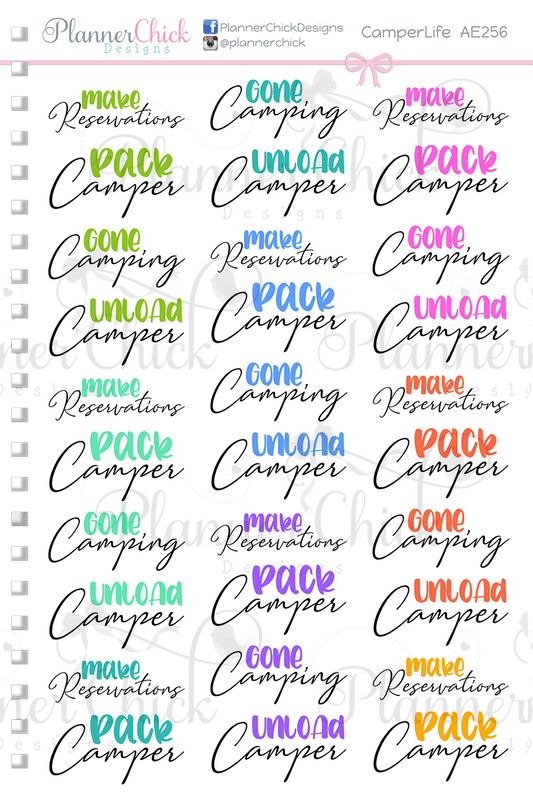 PlannerChick
Designs
PlannerChickDesigns
@plannerchick
CamperLife AE256
make
Reservations
GONE
Camping
make
Reservations
pack
Camper
UNLOAd
Camper
pack
Camper
GONE
Camping
make
Reservations
GONE
Camping
UNLOAd
Camper
pack
Camper
UNLOAd
Camper
make
Reservations
GONE
Camping
make
Reservations
pack
Camper
UNLOAd
Camper
pack
Camper
GONE
Camping
make
Reservations
GONE
Camping
UNLOAd
Camper
pack
Camper
UNLOAd
Camper
make
Reservations
GONE
Camping
make
Reservations
pack
Camper
UNLOAd
Camper
pack
Camper